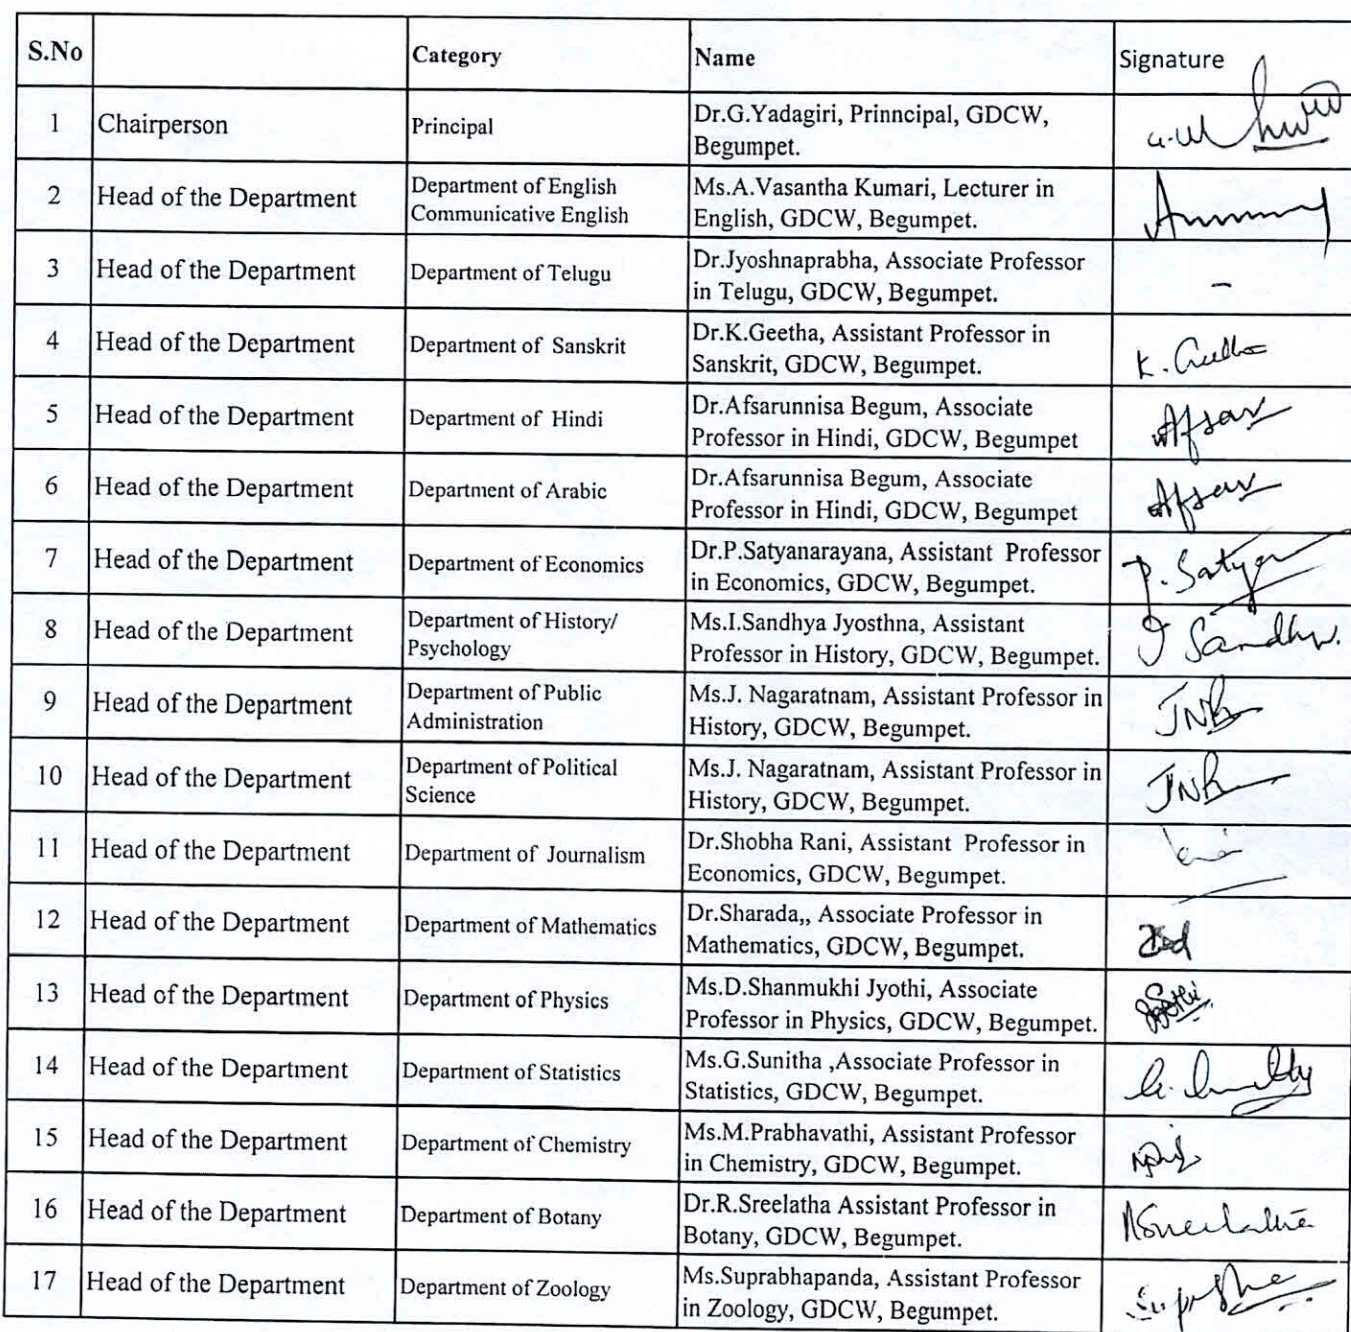 S.No Category Name Signature
1 Chairperson Principal Dr.G.Yadagiri, Prinncipal, GDCW,
Begumpet.
2 Head of the Department Department of English
Communicative English Ms.A.Vasantha Kumari, Lecturer in
English, GDCW, Begumpet.
3 Head of the Department Department of Telugu Dr.Jyoshnaprabha, Associate Professor
in Telugu, GDCW, Begumpet. -
4 Head of the Department Department of Sanskrit Dr.K.Geetha, Assistant Professor in
Sanskrit, GDCW, Begumpet. K. Geetha
5 Head of the Department Department of Hindi Dr.Afsarunnisa Begum, Associate
Professor in Hindi, GDCW, Begumpet Afsar
6 Head of the Department Department of Arabic Dr.Afsarunnisa Begum, Associate
Professor in Hindi, GDCW, Begumpet Afsar
7 Head of the Department Department of Economics Dr.P.Satyanarayana, Assistant Professor
in Economics, GDCW, Begumpet. P. Satya
8 Head of the Department Department of History/
Psychology Ms.I.Sandhya Jyosthna, Assistant
Professor in History, GDCW, Begumpet. I Sandhya.
9 Head of the Department Department of Public
Administration Ms.J. Nagaratnam, Assistant Professor in
History, GDCW, Begumpet. JNR
10 Head of the Department Department of Political
Science Ms.J. Nagaratnam, Assistant Professor in
History, GDCW, Begumpet. JNR
11 Head of the Department Department of Journalism Dr.Shobha Rani, Assistant Professor in
Economics, GDCW, Begumpet.
12 Head of the Department Department of Mathematics Dr.Sharada,, Associate Professor in
Mathematics, GDCW, Begumpet.
13 Head of the Department Department of Physics Ms.D.Shanmukhi Jyothi, Associate
Professor in Physics, GDCW, Begumpet.
14 Head of the Department Department of Statistics Ms.G.Sunitha ,Associate Professor in
Statistics, GDCW, Begumpet.
15 Head of the Department Department of Chemistry Ms.M.Prabhavathi, Assistant Professor
in Chemistry, GDCW, Begumpet.
16 Head of the Department Department of Botany Dr.R.Sreelatha Assistant Professor in
Botany, GDCW, Begumpet. RSreelatha
17 Head of the Department Department of Zoology Ms.Suprabhapanda, Assistant Professor
in Zoology, GDCW, Begumpet.